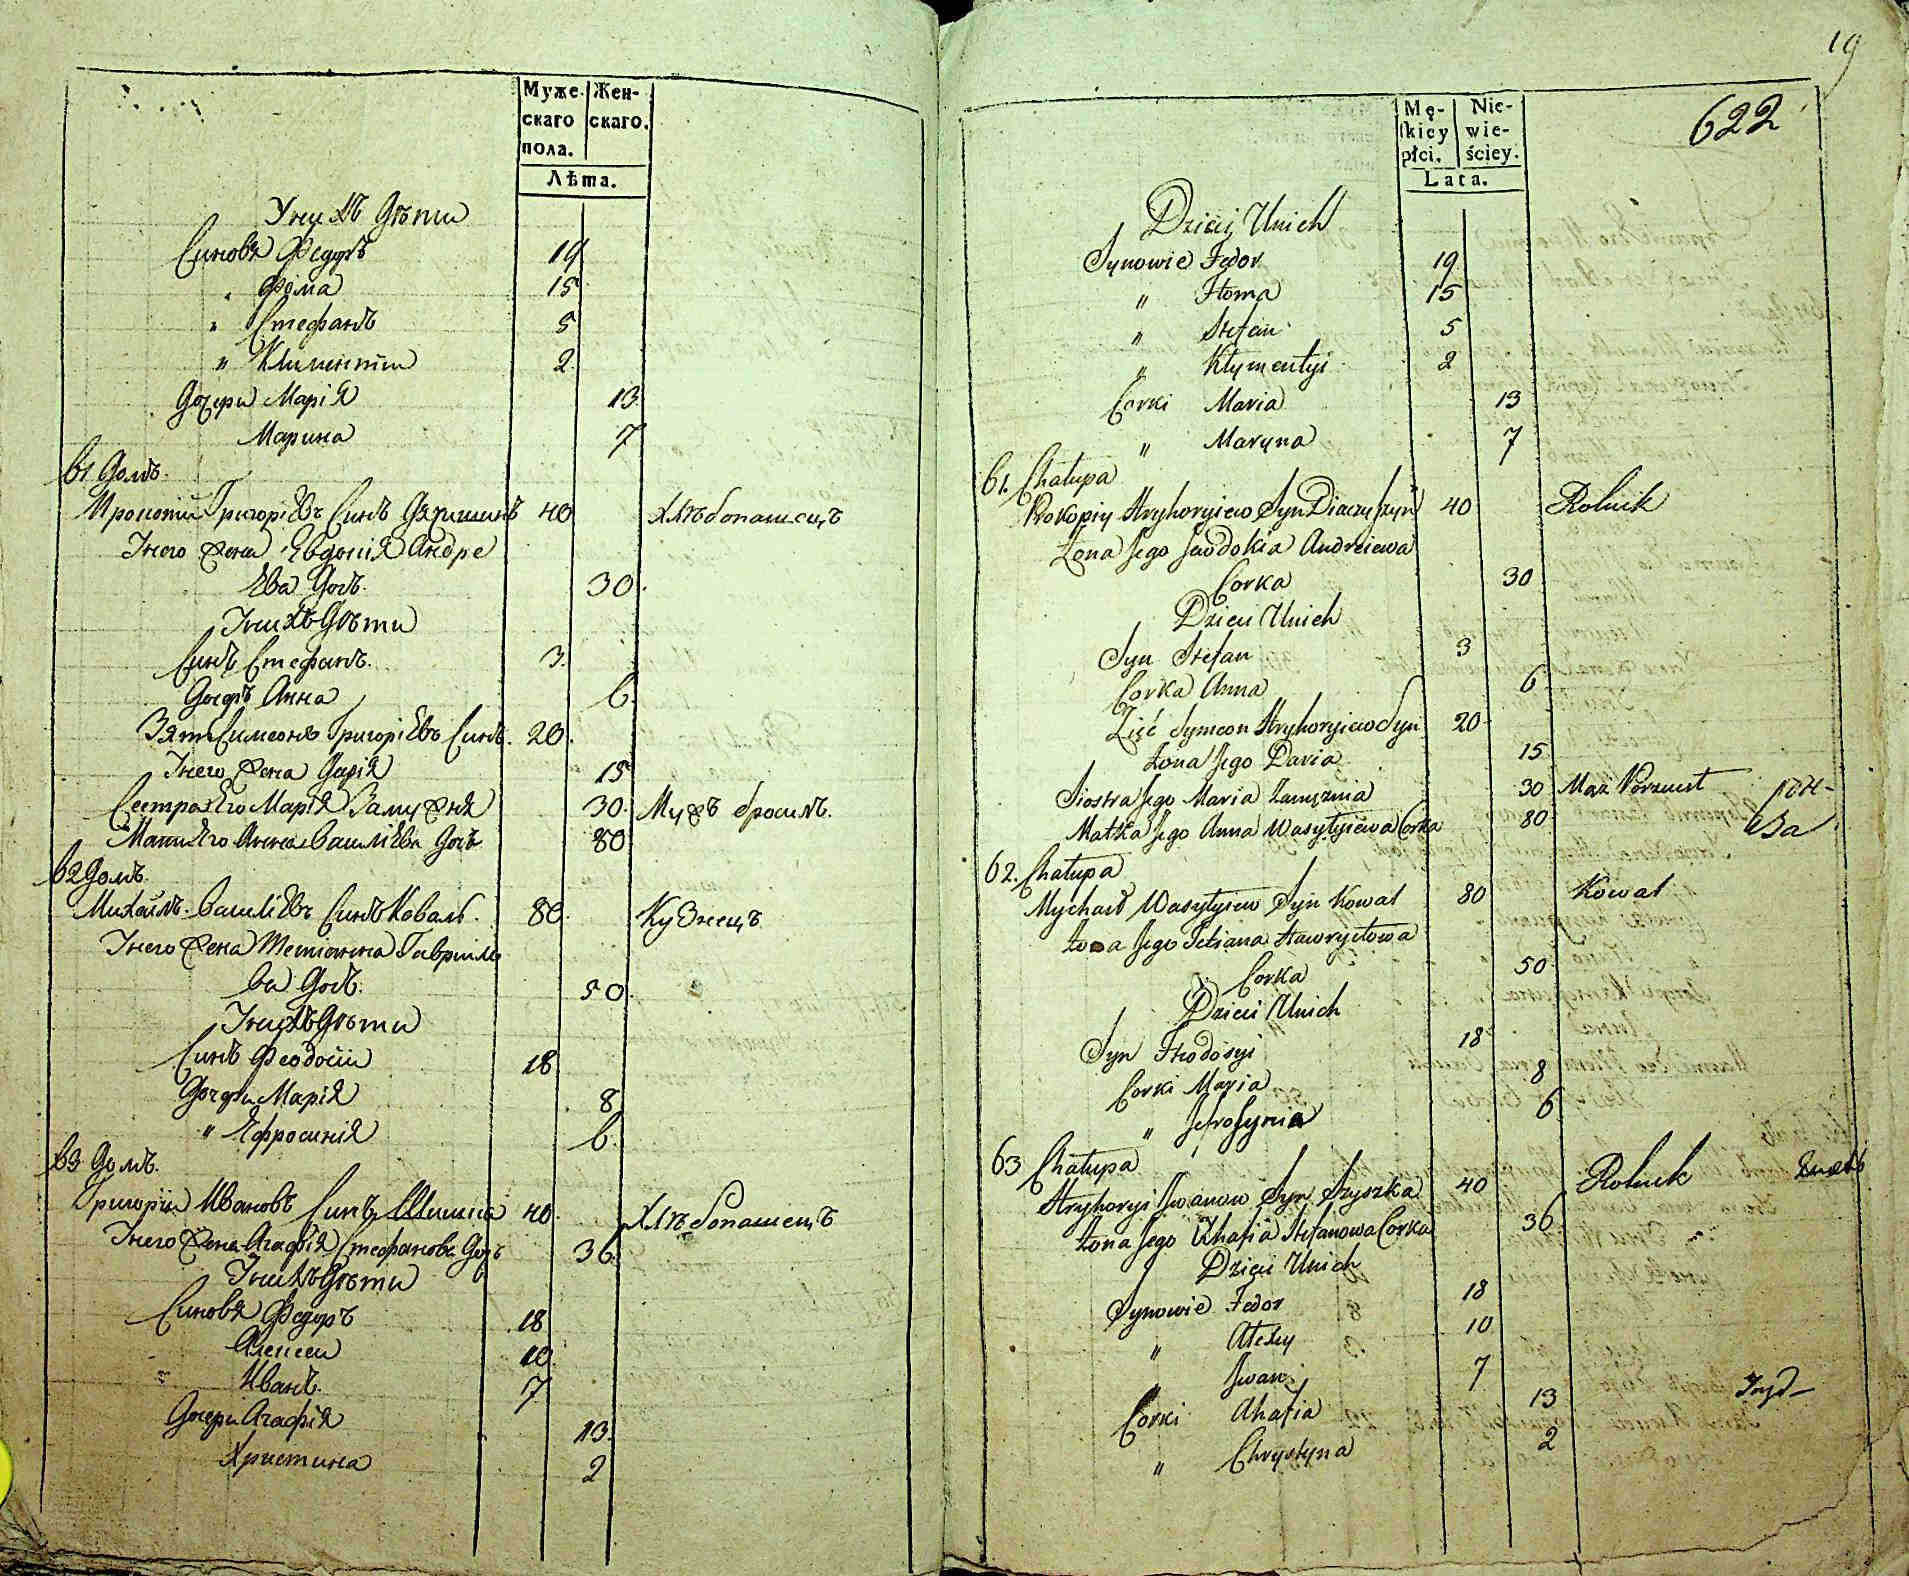 Муже-
скаго
пола.
Жен-
скаго.
Лѣта.
У нихъ Дѣти
Синовя Федоръ 19
Фома 15
" Стефанъ 5
" Климентии 2
Дочери Марія 13
Марина 7
61 Домъ.
Прокопій Григоріевъ Синъ 40 Хлѣбопашецъ
Унего Жена Евдокія Андре
ева Дочь. 30
Унихъ Дѣти
Синъ Стефанъ. 3.
Дочерь Анна 6.
Зять Симеонъ Григоріевъ Синъ. 20.
Унего Жена Дарія 15
Сестра Его Марія Замужня 30. Мужъ бросилъ.
Мати Его Анна Василіева Дочь 80
62 Домъ.
Михайлъ Василіевъ Синъ Коваль. 80. Кузнецъ
Унего Жена Тетіанна Гаврило
ва Дочь. 50.
Унихъ Дѣти
Синъ Феодосіи 18
Дочери Марія 8
" Ефросинія 6.
63 Домъ.
Григоріи Ивановъ Синъ Шишка 40. Хлѣбопашецъ
Унего Жена Агафія Стефанова Дочь 36.
Унихъ Дѣти
Синовя Федоръ 18
Алексеи 10.
" Иванъ. 7
Дочери Агафія 13.
Христина 2
19
622
Mę-
ſkiey
płci.
Nie-
wie-
ściey.
Lata.
Dzieci Unich
Synowie Fedor 19
" Homa 15
" Stefan 5
" Kłymentyi 2
Corki Maria 13
" Maryna 7
61. Chałupa
Prokopiy Hryhoryiew Syn Diaczyszyn 40 Rolnik
Żona Jego Jewdokia Andreiewa
Corka 30
Dzieci Unich
Syn Stefan 3
Corka Anna 6
Zięć Symeon Hryhoryiew Syn 20
Żona Jego Daria 15
Siostra Jego Maria Zamężnia 30 Mąż Porzucił
Matka Jego Anna Wasylyiewa Corka 80
62. Chałupa
Mychaił Wasylyiew Syn Kowal 80 Kowal
Żona Jego Tetiana Hawryłowa
Corka 50
Dzieci Unich
Syn Fteodosyi 18
Corki Maria 8
" Jefrosynia 6
63 Chałupa
Hryhoryi Iwanow Syn Szyszka 40 Rolnik
Żona Jego Ahafia Stefanowa Corka 36
Dzieci Unich
Synowie Fedor 18
" Alexy 10
" Iwan 7
Corki Ahafia 13
" Chrystyna 2